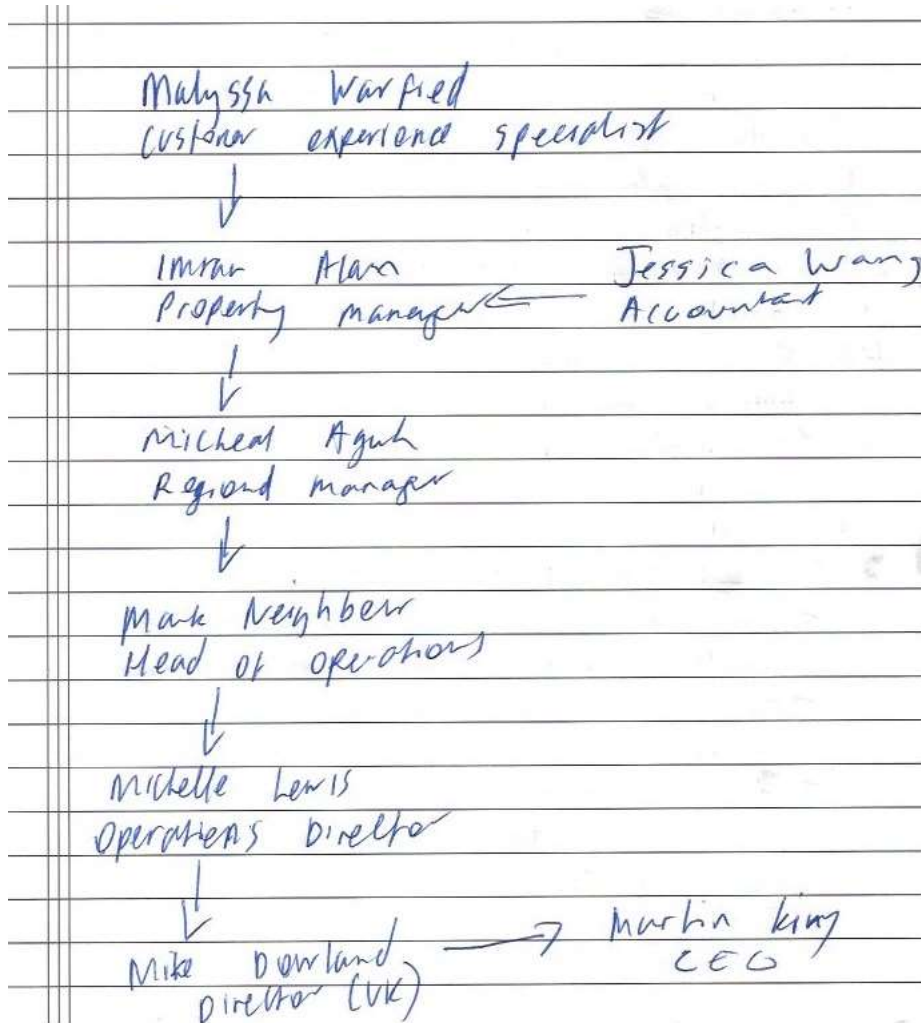 Malyssa Warfied
Customer experience specialist
Imran Alam
Property manager
Jessica Wang
Accountant
Micheal Aguh
Regional manager
Mark Neighbour
Head of operations
Michelle Lewis
Operations Director
Mike Dowland
Director (UK)
Martin King
CEO